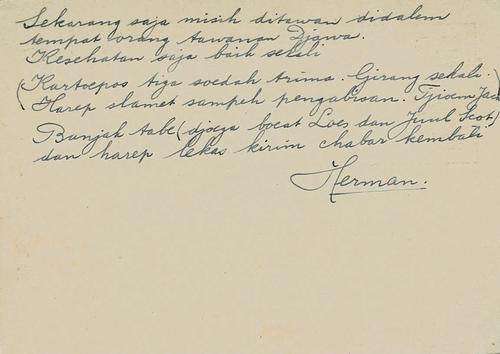 Sekarang saja misih ditawan didalem
tempat orang tawanan Djawa.
Kesehatan saja baik sekali
(Kartoepos tiga soedah trima. Girang sekali.)
(Harep slamet sampeh pengabisan. Tjioem Jac
Banjak tabe (djoega boeat Loes dan Juul Scot)
dan harep lekas kirim chabar kembali
Herman.